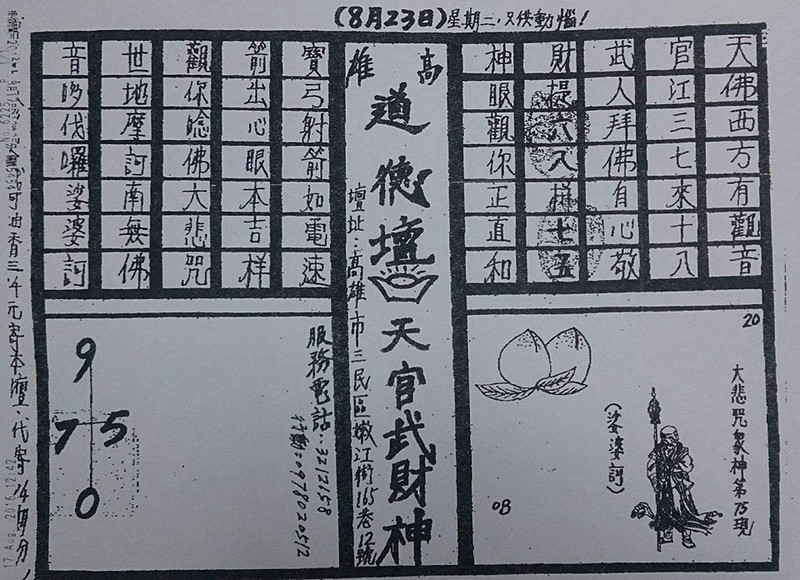 (8月23日)星期二,又快動惱!
天佛西方有觀音
官江三七來十八
武人拜佛自心敬
財提六八樣七五
神眼觀你正直和
20
大悲咒象神第75現
(娑婆訶)
08
高雄
道德壇
天官武財神
壇址:高雄市三民區嫩江街165巷12號
寶弓射箭如電速
箭出心眼本吉样
觀你唸佛大悲咒
世地摩訶南無佛
音哆伐囉娑婆訶
服務電話:3212158
行動:0978020512
9
7 5
0
可油香三千元寄本壇、代寄14期分!
17 Aug. 2016 12:42